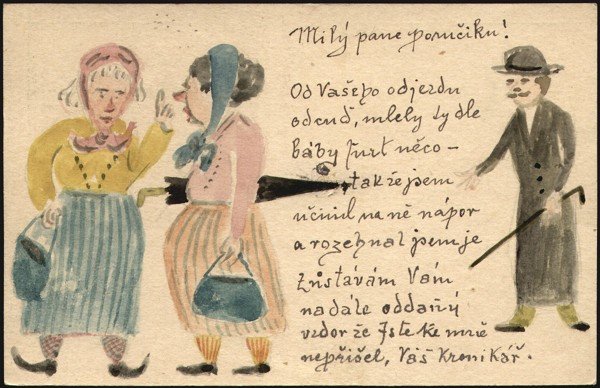 Milý pane poručíku!
Od Vašeho odjezdu
odcud, mlely tydle
báby furt něco -
takže jsem
učinil na ně nápor
a rozehnal jsem je
Zůstávám Vám
nadále oddaný
vzdor že Jste ke mně
nepřišel, Váš Kronikář.